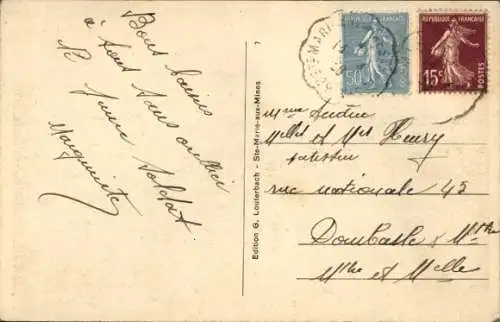 Bons baisers
à tous sans oublier
le jeune soldat
Marguerite
7
Edition G. Louterbach - Ste-Marie-aux-Mines
REPUBLIQUE FRANÇAISE
50
REPUBLIQUE FRANÇAISE
15c
POSTES
STE-MARIE
Mme
Melles et Mr Henry
patissier
rue nationale 45
Dombasle s Mthe
Mthe et Melle